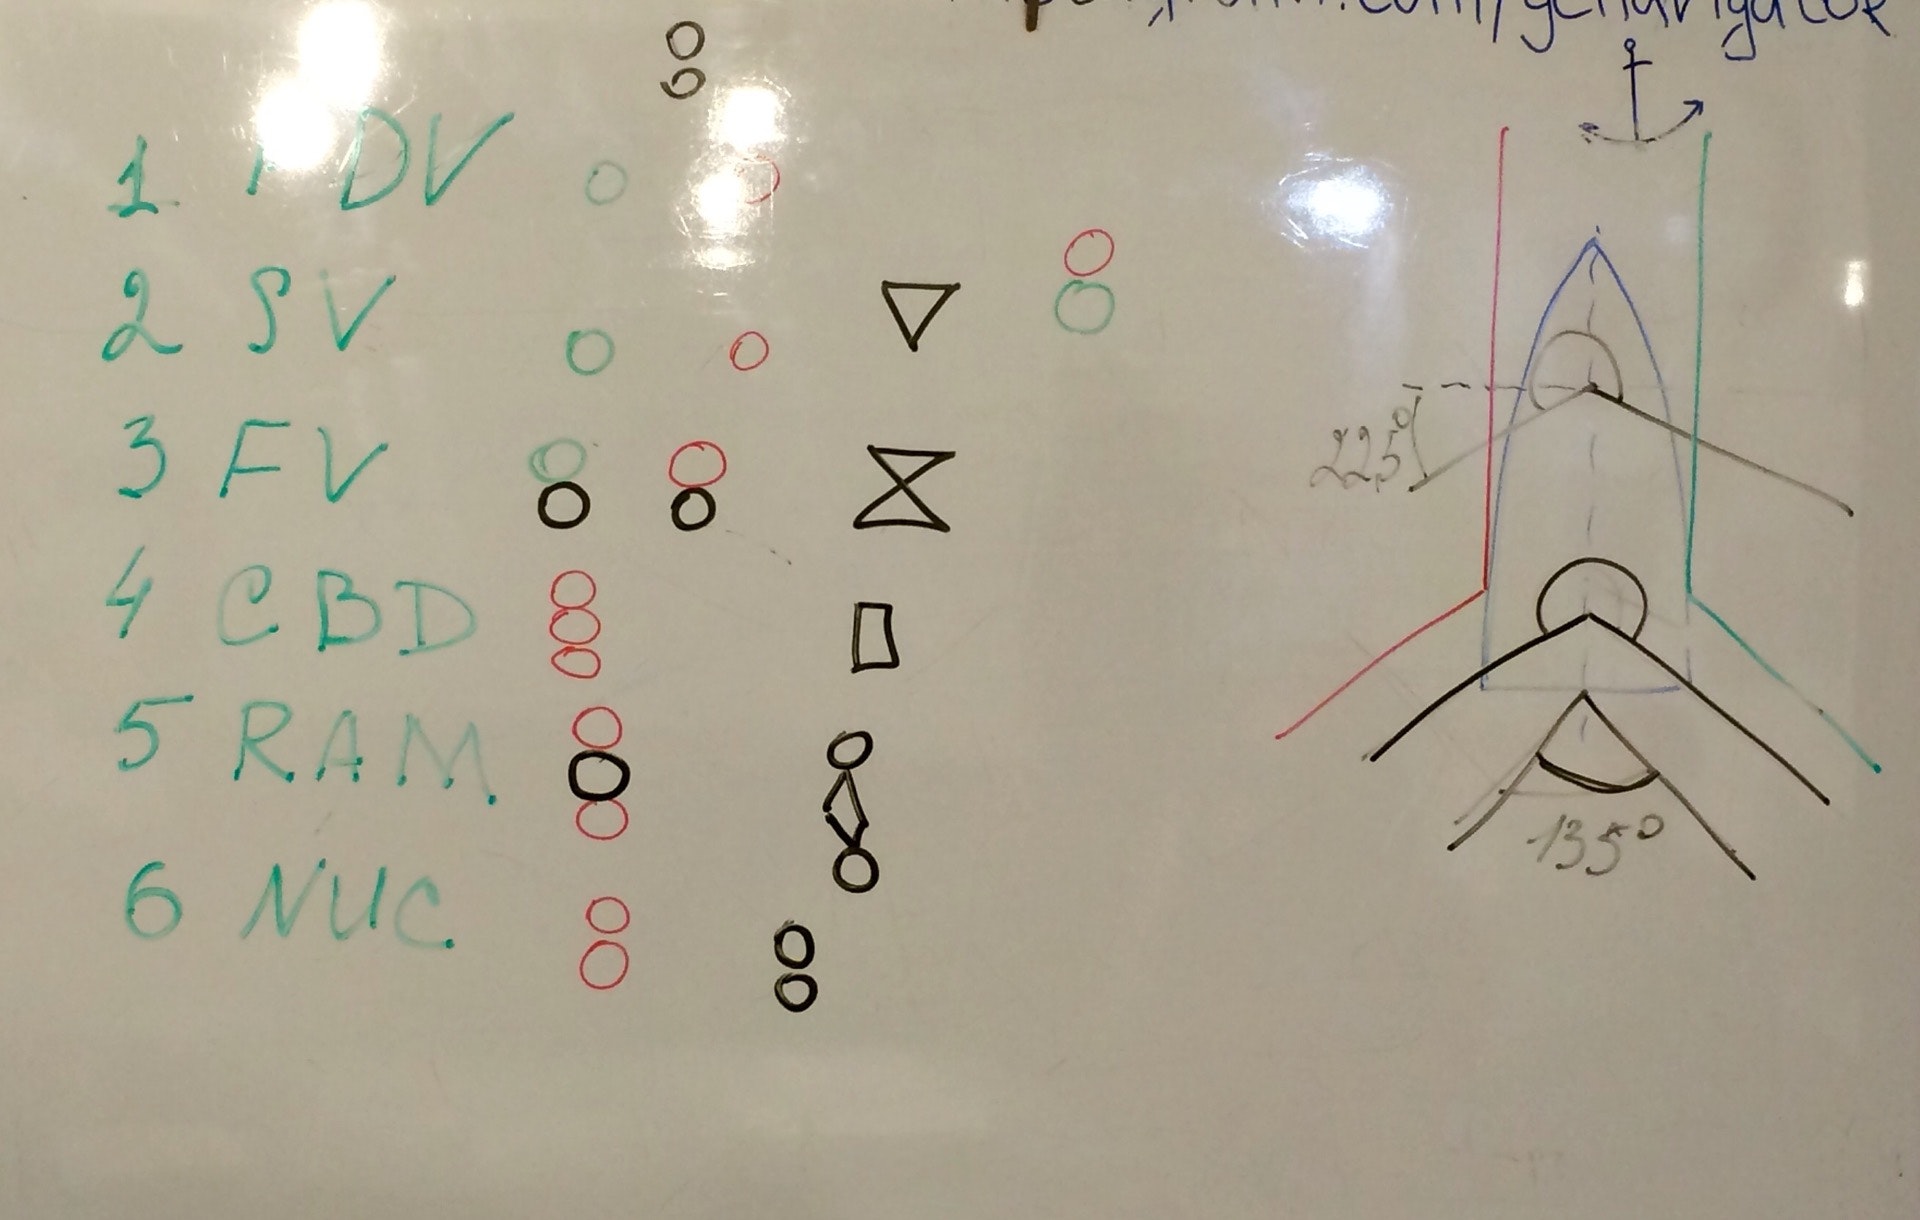 1 PDV
2 SV
3 FV
22,5°
4 CBD
5 RAM
135°
6 NUC